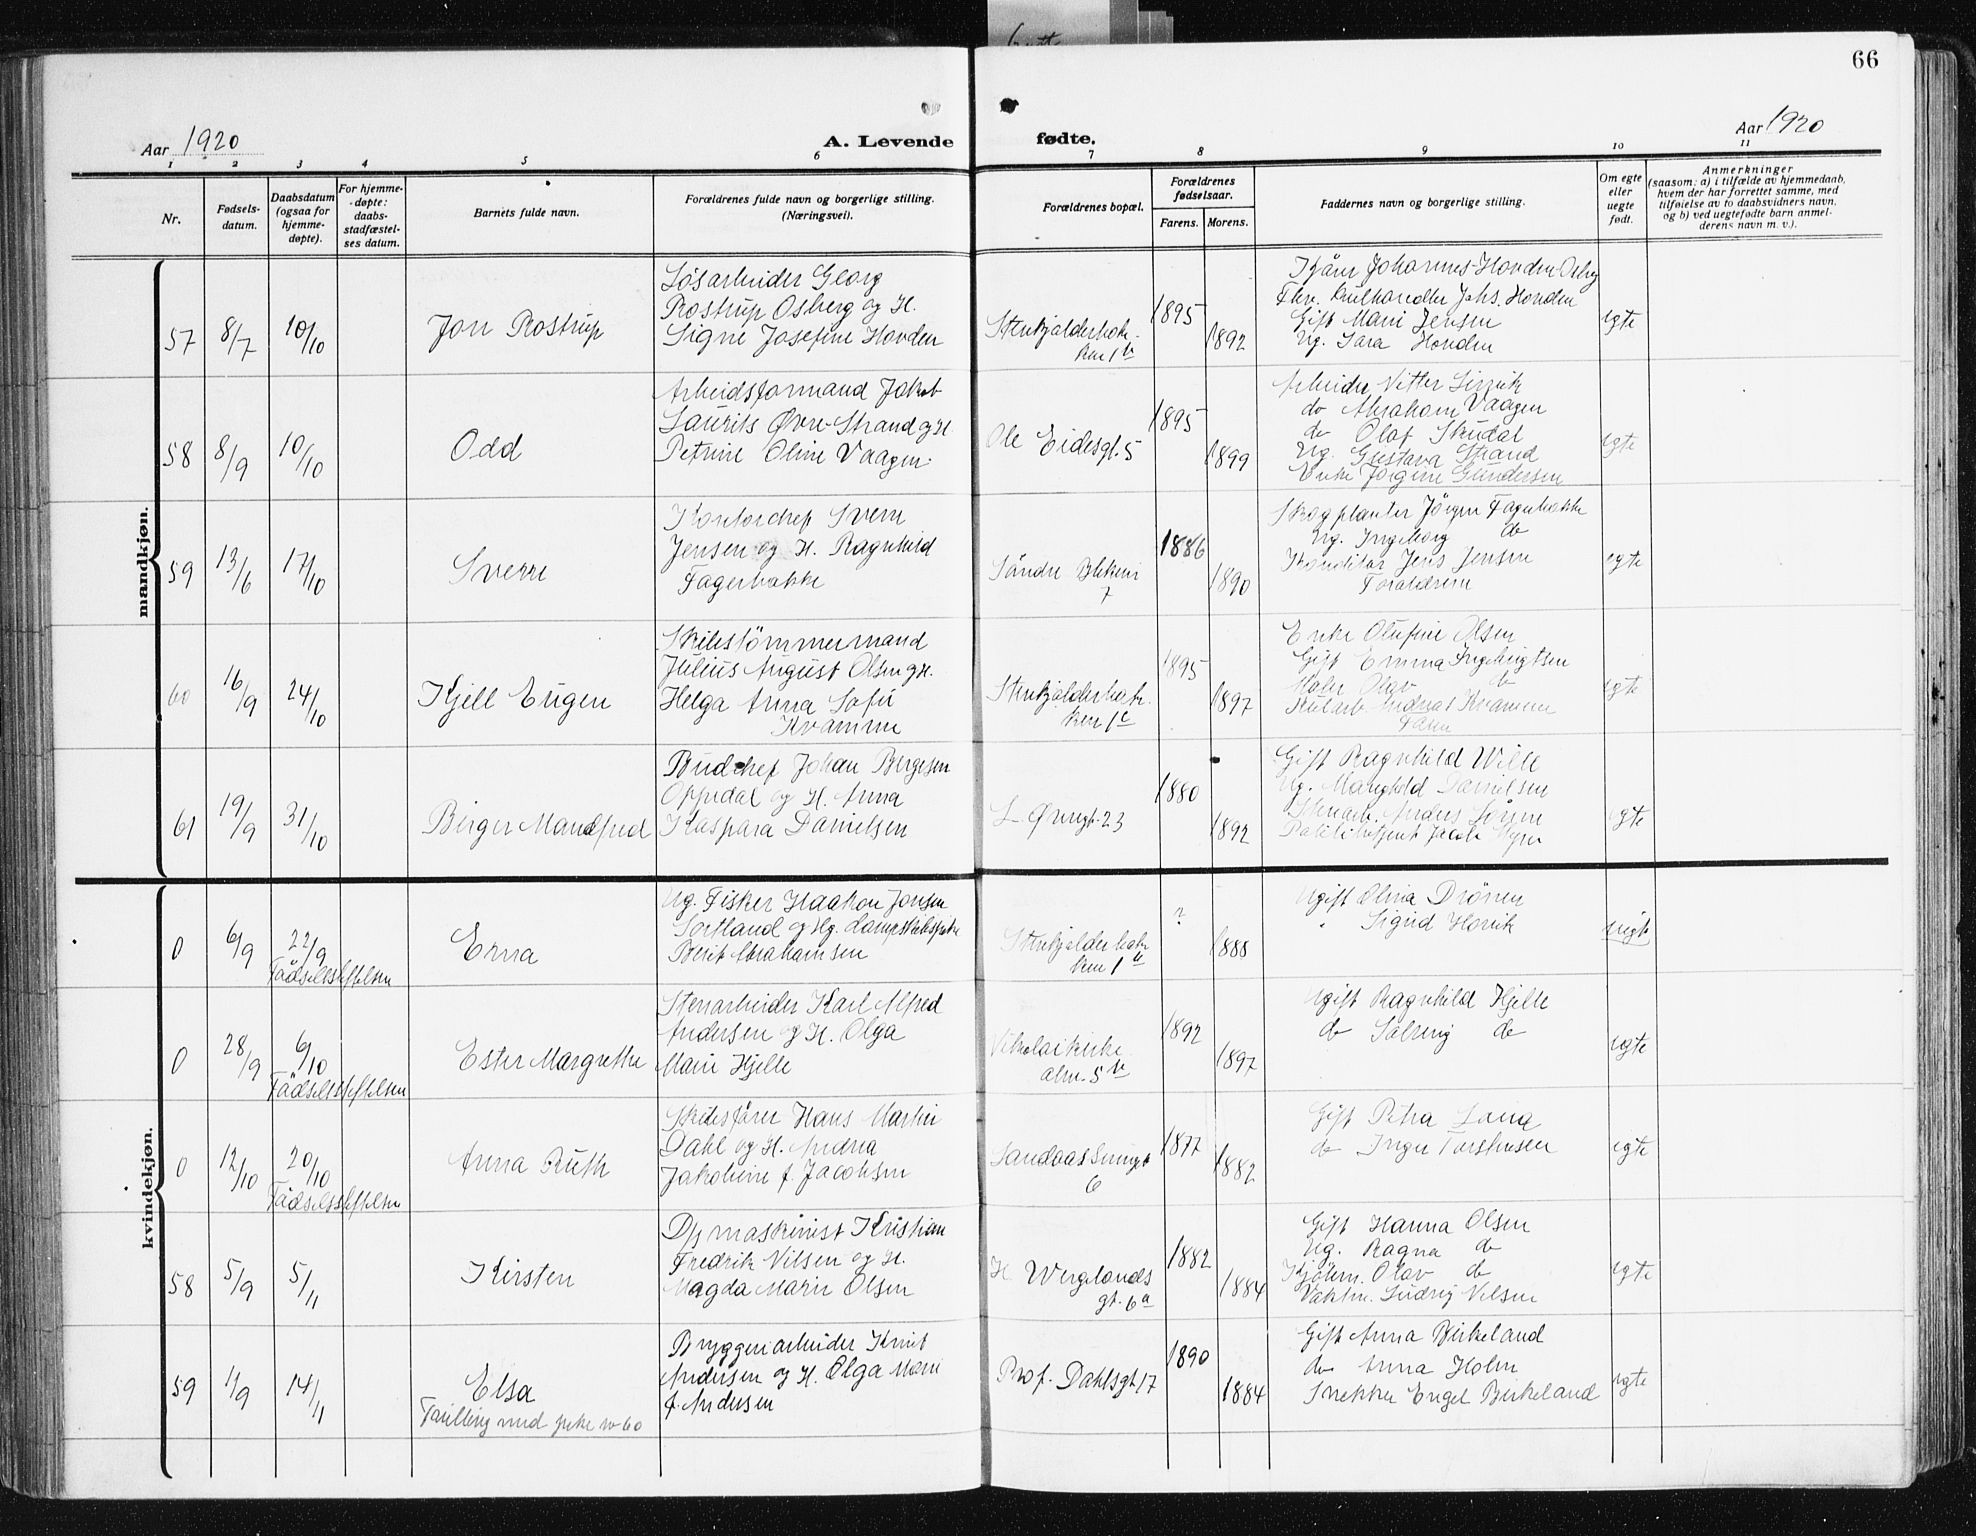 66
Aar 1920
A. Levende fødte.
Aar 1920
1 2 3 4 5 6 7 8 9 10 11
Nr.
Fødsels-datum.
Daabsdatum (ogsaa for hjemme-døpte).
For hjemme-døpte: daabs-stadfæstel-ses datum.
Barnets fulde navn.
Forældrenes fulde navn og borgerlige stilling. (Næringsvei).
Forældrenes bopæl.
Forældrenes fødselsaar.
Farens. Morens.
Faddernes navn og borgerlige stilling.
Om egte eller uegte født.
Anmerkninger
(saasom: a) i tilfælde av hjemmedaab,
hvem der har forrettet samme, med
tilføielse av to daabsvidners navn,
og b) ved uegtefødte barn anmel-
derens navn m. v.).
mandkjøn.
57 8/7 10/10 Jon Rostrup
Løsarbeider Georg
Rostrup Osberg og H.
Signe Josefine Hovden
1895 1892
Johannes Hovden Osberg
Johs. Hovden
Gift Marie Jensen
Ug. Sara Hovden
egte
58 8/9 10/10 Odd
Arbeidsformand Jakob
Laurits Øvre-Strand og H.
Petrine Oline Vaagen.
Ole Eidesgt. 5
1895 1899
Arbeider Vitter
do Abraham Vaagen
do Olaf Skudal
Ug. Gustava Strand
Enke Jørgine Gundersen
egte
59 13/6 17/10 Sverre
Kontorchef Sverre
Jensen og H. Ragnhild
Fagerbakke
Søndre Blekevei
7
1886 1890
Skogplanter Jörgen Fagerbakke
Ug. Ingeborg do
Konditor Jens Jensen
Forældrene
egte
60 16/9 24/10 Kjell Eugen
Skibstömmermand
Julius August Olsen og H.
Helga Anna Sofie
Kvamme
1895 1897
Enke Olufine Olsen
Gift Emma Ingebrigtsen
Maler Olav do
Andreas Kvamme
Faren
egte
61 19/9 31/10 Birger Mandfred
Budchef Johan Bergesen
Oppedal og H. Anna
Kaspara Danielsen
L. Øvregt. 23
1880 1892
Gift Ragnhild Wille
Ug. Danielsen
Stenarb. Anders
Jacob Myre
egte
kvindekjøn.
0 6/9 22/9 Erna
Fødselsstiftelsen
Ug. Fisker Haakon Jonsen
Sortland og Ug. dampskibspike
Berit Abrahamsen
? 1888
Ugift Olina Drönen
" Sigrid Hovik
uegte
0 28/9 6/10 Ester Margrethe
Fødselsstiftelsen
Stenarbeider Karl Alfred
Andersen og H. Olga
Marie Hjelle
Nikolaikirke
alm. 5 b
1892 1897
Ugift Ragnhild Hjelle
do Solveig do
egte
0 12/10 20/10 Anna Ruth
Fødselsstiftelsen
Skibsfører Hans Martin
Dahl og H. Andrea
Jakobine f. Jacobsen
6
1877 1882
Gift Petra
do Inger Torstensen
egte
58 5/9 5/11 Kirsten
D/s maskinist Kristian
Fredrik Nilsen og H.
Magda Marie Olsen
H. Wergelands
gt. 6 a
1882 1884
Gift Hanna Olsen
Ug. Ragna do
Kjøbm. Olav do
Ludvig Nilsen
egte
59 1/9 14/11 Elsa
Tvilling med pike nr 60
Bryggeriarbeider Knut
Andersen og H. Olga Marie
f. Andersen
Prof. Dahlsgt 17
1890 1884
Gift Anna Birkeland
do Anna Holm
Snekker Engel Birkeland
egte